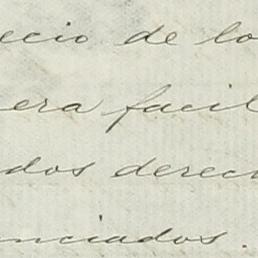 ecio de lo
era facil
dos derec
nciados.